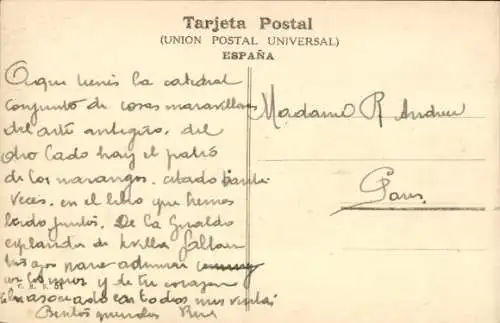 Tarjeta Postal
(UNION POSTAL UNIVERSAL)
ESPAÑA
Aqui tienes la catedral
conjunto de cosas maravillosas
del arte antiguo. del
otro lado hay el patio
de los narangos. citado tantas
veces. en el libro que hemos
leido juntos. De la Giralda
esplandor de Sevilla faltan
tus ojos para admirar
y de tu corazon
asociado con todos mis
Besitos queridos
Madame R Andreu
Paris